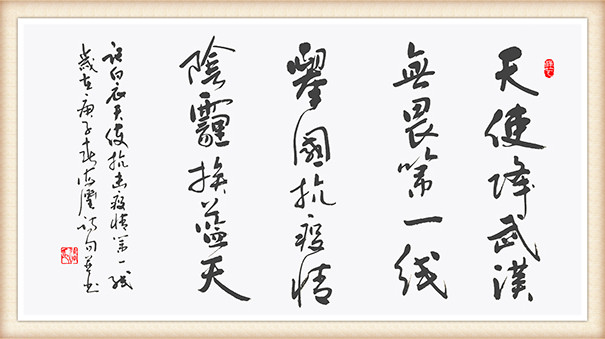 天使降武漢
無畏第一线
舉國抗疫情
陰霾换蓝天
記白衣天使抗击疫情第一线
歲在庚子春诗句並书